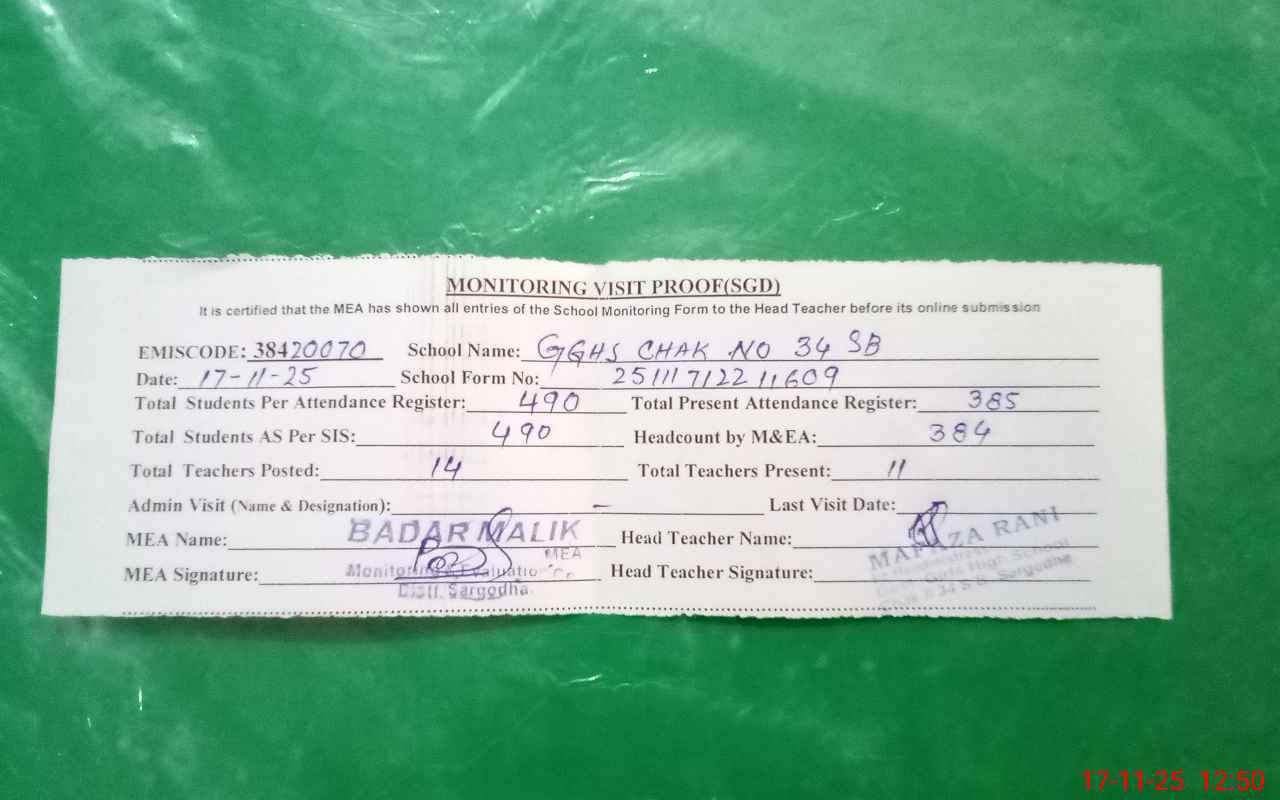 MONITORING VISIT PROOF(SGD)
It is certified that the MEA has shown all entries of the School Monitoring Form to the Head Teacher before its online submission
EMISCODE: 38420070 School Name: GGHS CHAK NO 34 SB
Date: 17-11-25 School Form No: 25111712211609
Total Students Per Attendance Register: 490 Total Present Attendance Register: 385
Total Students AS Per SIS: 490 Headcount by M&EA: 384
Total Teachers Posted: 14 Total Teachers Present: 11
Admin Visit (Name & Designation): – Last Visit Date:
MEA Name: BADAR MALIK Head Teacher Name:
MEA
MEA Signature: Monitoring & Evaluation Head Teacher Signature:
Distt. Sargodha.
RANI
Girls High School
34 S.B. Sargodha
17-11-25 12:50